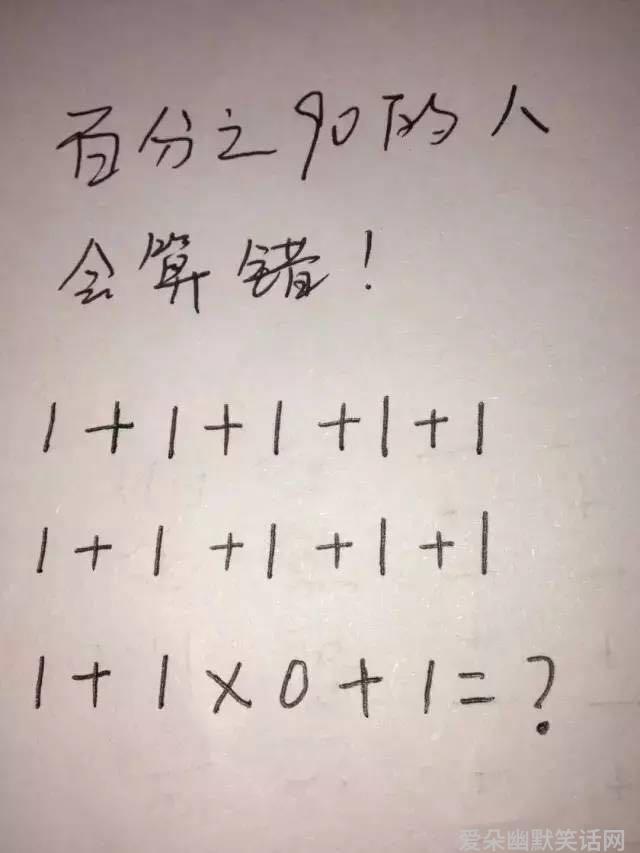 百分之90的人
会算错!
1+1+1+1+1
1+1+1+1+1
1+1×0+1=?
爱朵幽默笑话网